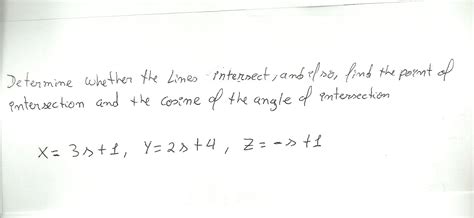 Determine whether the Lines intersect, and if so, find the point of
intersection and the cosine of the angle of intersection
X = 3s+1, Y = 2s+4, Z = -s+1